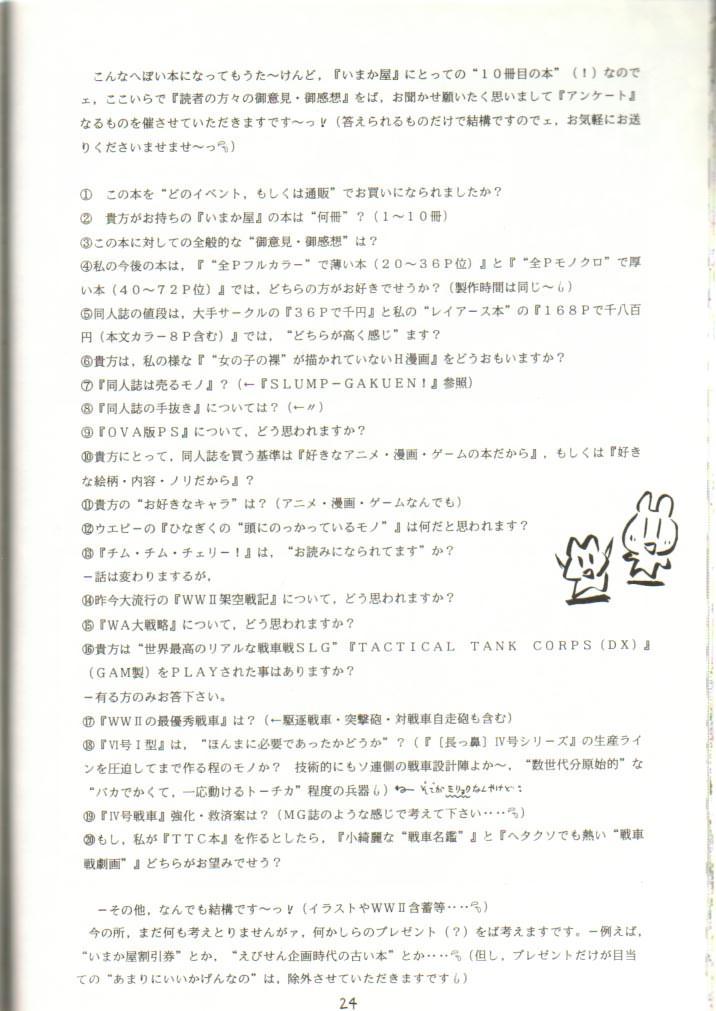 こんなへぽい本になってもうた～けんど，『いまか屋』にとっての“１０冊目の本”（！）なので
ェ，ここいらで『読者の方々の御意見・御感想』をば，お聞かせ願いたく思いまして『アンケート』
なるものを催させていただきますです～っ！（答えられるものだけで結構ですのでェ，お気軽にお送
りくださいませませ～っ）
①　この本を“どのイベント，もしくは通販”でお買いになられましたか？
②　貴方がお持ちの『いまか屋』の本は“何冊”？（１～１０冊）
③この本に対しての全般的な“御意見・御感想”は？
④私の今後の本は，『“全Ｐフルカラー”で薄い本（２０～３６Ｐ位）』と『“全Ｐモノクロ”で厚
い本（４０～７２Ｐ位）』では，どちらの方がお好きでせうか？（製作時間は同じ～）
⑤同人誌の値段は，大手サークルの『３６Ｐで千円』と私の“レイアース本”の『１６８Ｐで千八百
円（本文カラー８Ｐ含む）』では，“どちらが高く感じ”ます？
⑥貴方は，私の様な『“女の子の裸”が描かれていないＨ漫画』をどうおもいますか？
⑦『同人誌は売るモノ』？（←『ＳＬＵＭＰ－ＧＡＫＵＥＮ！』参照）
⑧『同人誌の手抜き』については？（←〃）
⑨『ＯＶＡ版ＰＳ』について，どう思われますか？
⑩貴方にとって，同人誌を買う基準は『好きなアニメ・漫画・ゲームの本だから』，もしくは『好き
な絵柄・内容・ノリだから』？
⑪貴方の“お好きなキャラ”は？（アニメ・漫画・ゲームなんでも）
⑫ウエピーの『ひなぎくの“頭にのっかっているモノ”』は何だと思われます？
⑬『チム・チム・チェリー！』は，“お読みになられてます”か？
－話は変わりまするが，
⑭昨今大流行の『ＷＷⅡ架空戦記』について，どう思われますか？
⑮『ＷＡ大戦略』について，どう思われますか？
⑯貴方は“世界最高のリアルな戦車戦ＳＬＧ”『ＴＡＣＴＩＣＡＬ　ＴＡＮＫ　ＣＯＲＰＳ（ＤＸ）』
（ＧＡＭ製）をＰＬＡＹされた事はありますか？
－有る方のみお答下さい。
⑰『ＷＷⅡの最優秀戦車』は？（←駆逐戦車・突撃砲・対戦車自走砲も含む）
⑱『Ⅵ号Ⅰ型』は，“ほんまに必要であったかどうか”？（『〔長っ鼻〕Ⅳ号シリーズ』の生産ライ
ンを圧迫してまで作る程のモノか？　技術的にもソ連側の戦車設計陣よか～，“数世代分原始的”な
“バカでかくて，一応動けるトーチカ”程度の兵器）← そこがミリョクなんやけど：
⑲『Ⅳ号戦車』強化・救済案は？（ＭＧ誌のような感じで考えて下さい‥‥）
⑳もし，私が『ＴＴＣ本』を作るとしたら，『小綺麗な“戦車名鑑”』と『ヘタクソでも熱い“戦車
戦劇画”』どちらがお望みでせう？
－その他，なんでも結構です～っ！（イラストやＷＷⅡ含蓄等‥‥）
今の所，まだ何も考えとりませんがァ，何かしらのプレゼント（？）をば考えますです。－例えば，
“いまか屋割引券”とか，“えびせん企画時代の古い本”とか‥‥（但し，プレゼントだけが目当
ての“あまりにいいかげんなの”は，除外させていただきますです）
24